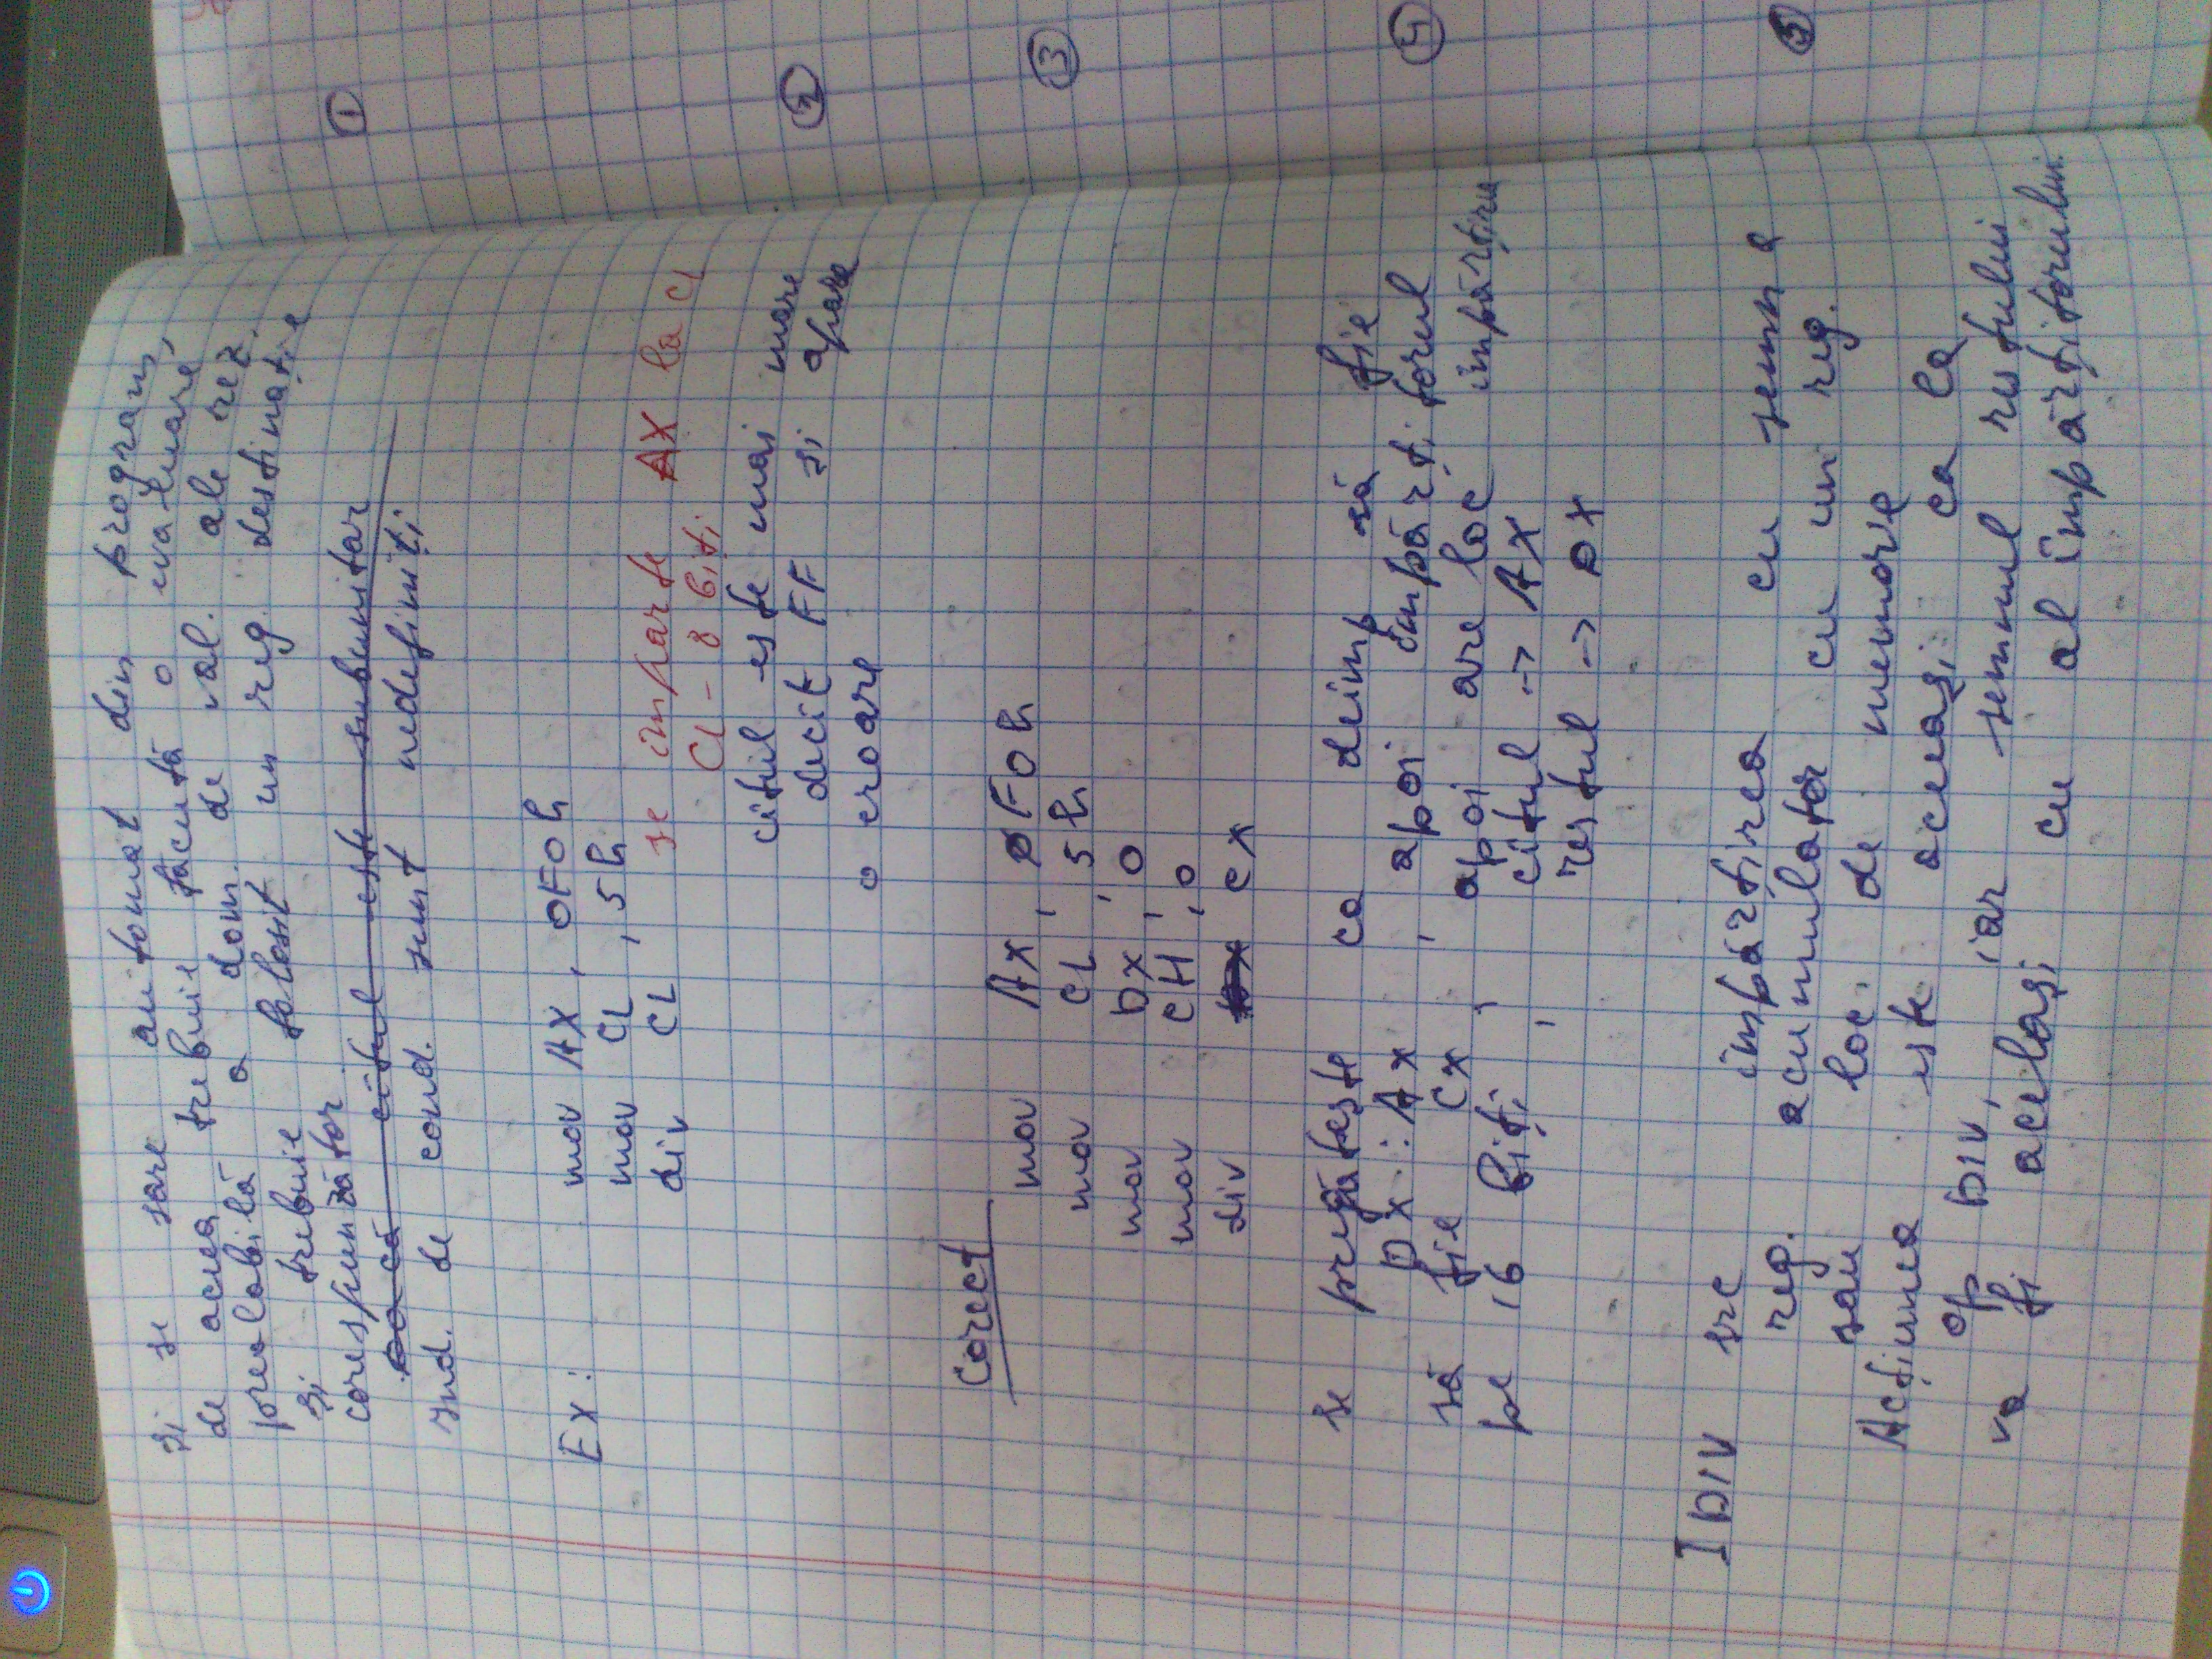 și se sare automat din program,
de aceea trebuie făcută o evaluare
prealabilă a dom. de val. ale rez.
și trebuie folosit un reg. destinație
corespunzător
dacă cîtul este subunitar
Ind. de cond. sunt nedefiniți
Ex: mov AX, 0F0h
mov CL, 5h
div CL se împarte AX la CL
CL - 8 biți
cîtul este mai mare
decît FF și apare
o eroare
Corect
mov Ax, 0F0h
mov CL, 5h
mov Dx, 0
mov CH, 0
div CX
se pregătește ca deimp să fie
DX:AX, apoi împărțitorul
să fie CX, apoi are loc împărțirea
pe 16 biți, cîtul -> AX
restul -> DX
IDIV src împărțirea cu semn a
reg. acumulator cu un reg.
sau loc. de memorie
Acțiunea este aceeași ca la
op DIV, iar semnul restului
va fi același cu al împărțitorului.
1
2
3
4
5